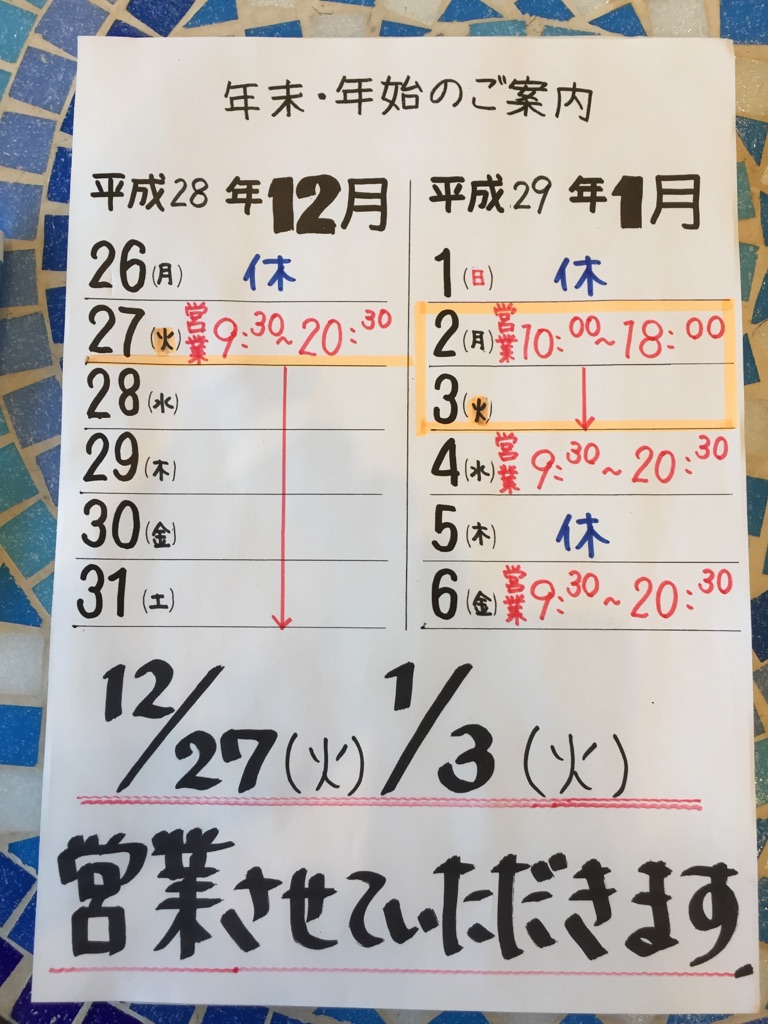 年末・年始のご案内
平成28年12月
26(月) 休
27(火) 営業 9:30~20:30
28(水)
29(木)
30(金)
31(土)
平成29年1月
1(日) 休
2(月) 営業 10:00~18:00
3(火)
4(水) 営業 9:30~20:30
5(木) 休
6(金) 営業 9:30~20:30
12/27(火) 1/3(火)
営業させていただきます.